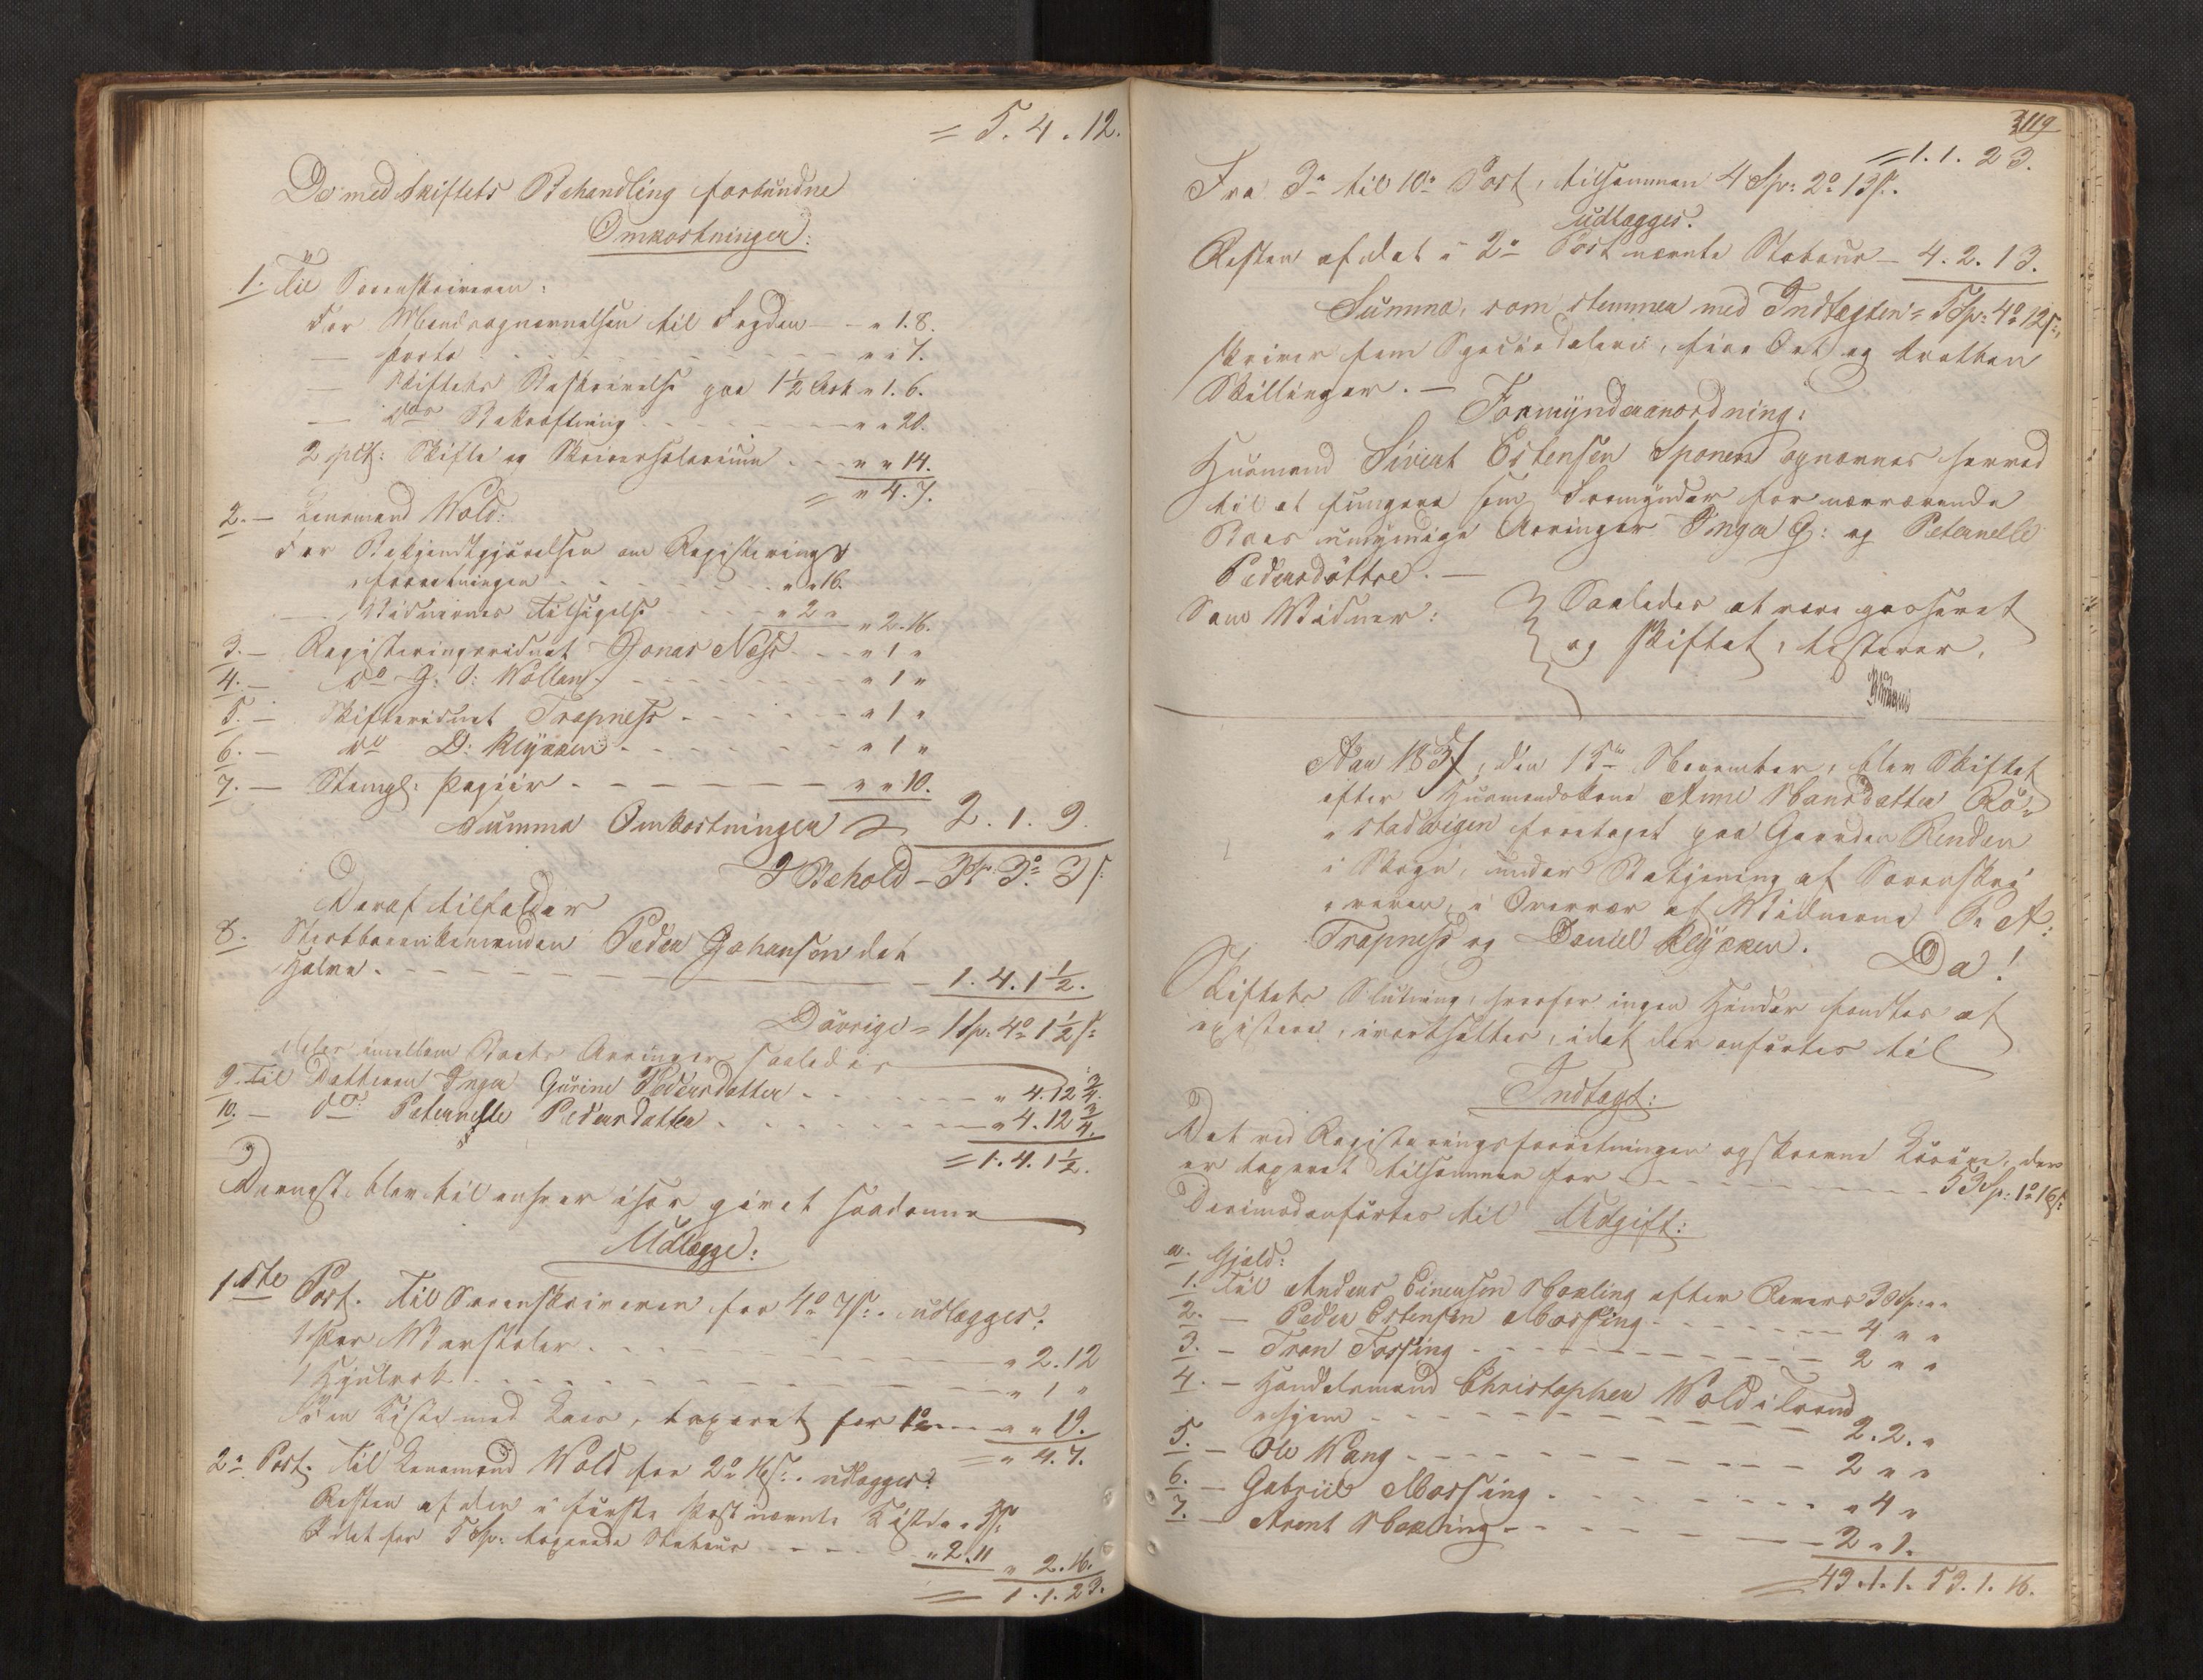 = 5. 4. 12.
De med Skiftets Behandling forbundne
Omkostninger:
1. Til Sorenskriveren:
For Mændsopnævnelsen til Fogden - - " 1. 8.
— porto - - - " " 7.
— Skiftets Beskrivelse paa 1½ Ark " 1. 6.
— do Bekræftning - - - " " 20.
2 pCt: Skifte og Skriversalarium - - " " 14.
= " 4. 7.
2. — Lensmand Wold:
For Bekjendtgjørelsen om Registerings
forretningen - - - " " 16.
— Vidnernes Tilsigelse - - - " 2 " " 2. 16.
3. — Registeringsvidnet Jonas Næss - - " 1 "
4. — do J: O: Wollan - - - " 1 "
5. — Skiftevidnet Trapness - - - " 1 "
6. — do D: Klÿkken - - - " 1 "
7. — Stempl: Papiir - - - " " 10.
Summa Omkostninger 2. 1. 9.
I Behold - 3 Sp. 3 o 3 s:
Deraf tilfalder
8. Stervboenkemanden Peder Johanson det
Halve - - - 1. 4. 1½.
Døvrige = 1 Sp: 4 o 1½ s:
deles imellem Boets Arvinger saaledes
9. Til Datteren Inger Gurine Pedersdatter - - - " 4. 12¾.
10. — do: Peternelle Pedersdatter - - - " 4. 12¾.
= 1. 4. 1½.
Dernæst blev til enhver især givet saadanne
Udlægge:
1ste Post. Til Sorenskriveren for 4 o 7 s: udlægges:
1 Hjulrok - - - " 1 "
Af en Kiste med Laas, taxeret for 1 o - - " " 19.
= " 4. 7.
2. Post. Til Lensmand Wold for 2 o 16 s: udlægges:
Resten af den i første Post nævnte Kiste " 5 s:
I det for 5 Sp: taxerede Stabuur - - - " 2. 11 " 2. 16.
= 1. 1. 23.
119
= 1. 1. 23.
Fra 3. til 10. Post, tilsammen 4 Sp: 2 o 13 s:
udlægges:
Resten af det i 2. Post nævnte Stabuur - 4. 2. 13.
Summa, som stemmer med Indtægten = 5 Sp: 4 o 12 s:,
skriver fem Speciedalere, fire Ort og tolv
Skillinger. —
Formÿnderanordning:
Huusmand Sivert Estensen Sponen opnævnes herved
til at fungere som Formynder for nærværende
Boes umyndige Arvinger Inger G: og Peternelle
Pedersdøttre. —
Som Vidner:
Saaledes at være passeret
og skiftet, testerer.
Aar 1837, den 15de November, blev Skiftet
efter Huusmandskone Anne Hansdatter Rø-
stadvigen foretaget paa Gaarden Rendan
i Skogn, under Betjening af Sorenskri-
veren, i Overvær af Vidnerne P. A:
Trapness og Daniel Klÿkken. Da!
Skiftets Slutning, hvorfor ingen Hinder fandtes at
existere, iværksattes, idet der anførtes til
Indtægt:
Det ved Registeringsforretningen opskrevne Løsøre, der
er taxeret tilsammen for - - - 53 Sp: 1 o 16 s:
Derimod anførtes til Udgift:
a. Gjæld:
1. Til Anders Einersen Hoxling efter Revers 30 Sp: " "
2. — Peder Estensen Mossing - - - 4 " "
3. — Tron Tossing - - - 2 " "
4. — Handelsmand Christopher Wold i Trond-
hjem - - - 2. 2. "
5. — Ole Wang - - - 2 " "
6. — Gabriel Mossing - - - " 4 "
7. — Arent Hoxling - - - 2 " 1.
= 43. 1. 1. 53. 1. 16.